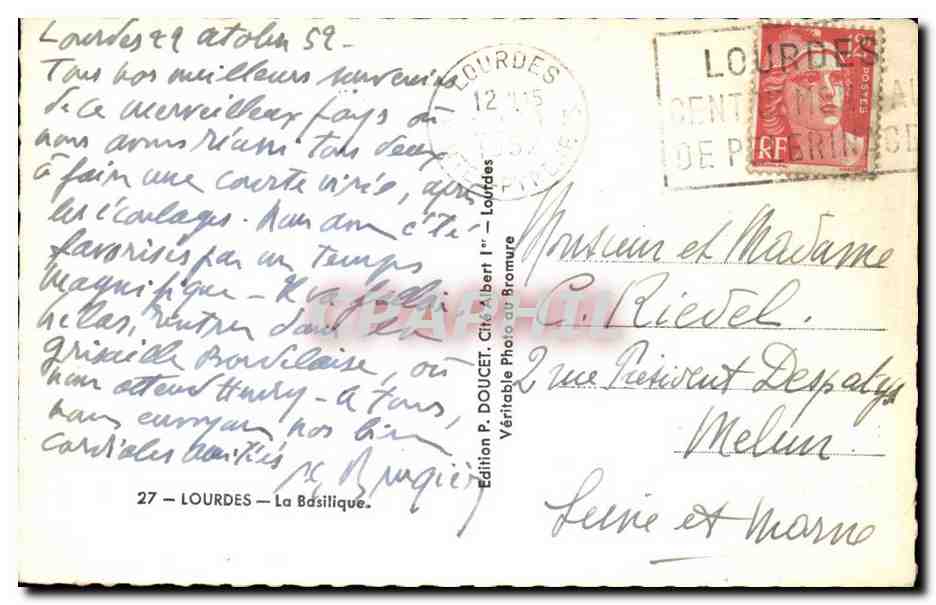 Lourdes 29 octobre 52 -
Tous nos meilleurs souvenirs
de ce merveilleux pays où
nous avons réussi tous deux
à faire une courte virée, après
les écoulages. Nous avons été
favorisés par un temps
magnifique - Il va falloir
hélas, rentrer dans la
grisaille Bordelaise, où
nous attend Henry - A tous,
nous envoyons nos bien
cordiales amitiés
27 - LOURDES - La Basilique.
Edition P. DOUCET. Cité Albert Ier - Lourdes
Véritable Photo au Bromure
LOURDES
12 H 15
1952
LOURDES
DE PELERINAGE
POSTES
RF
Monsieur et Madame
C. Riedel.
2 rue Président Despatys
Melun
Seine et Marne
CPAPHIL